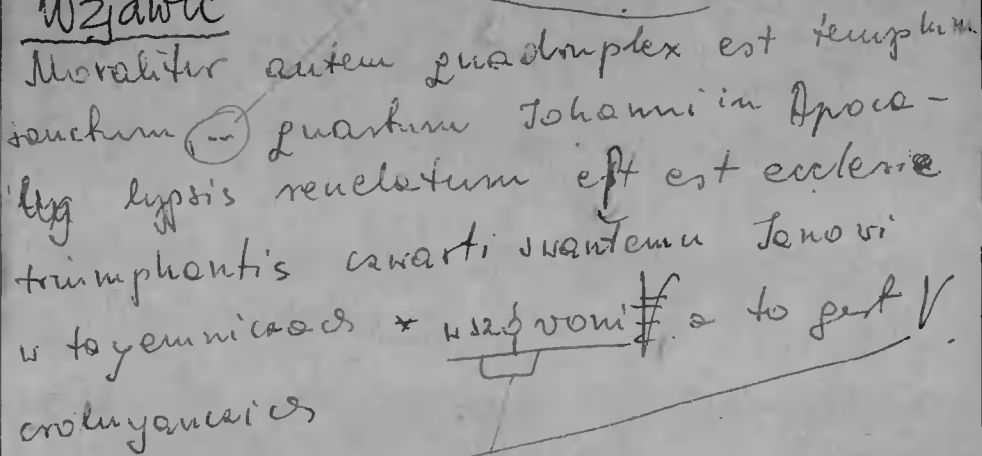 Wzjawić
Moraliter autem quadruplex est templum
sanctum (...) quartum Johanni in Apoca-
lypsis reuelatum est est ecclesie
triumphantis czwarti swantemu Janovi
w tayemniczach * wszǫvoni a to gest
croluyanczich